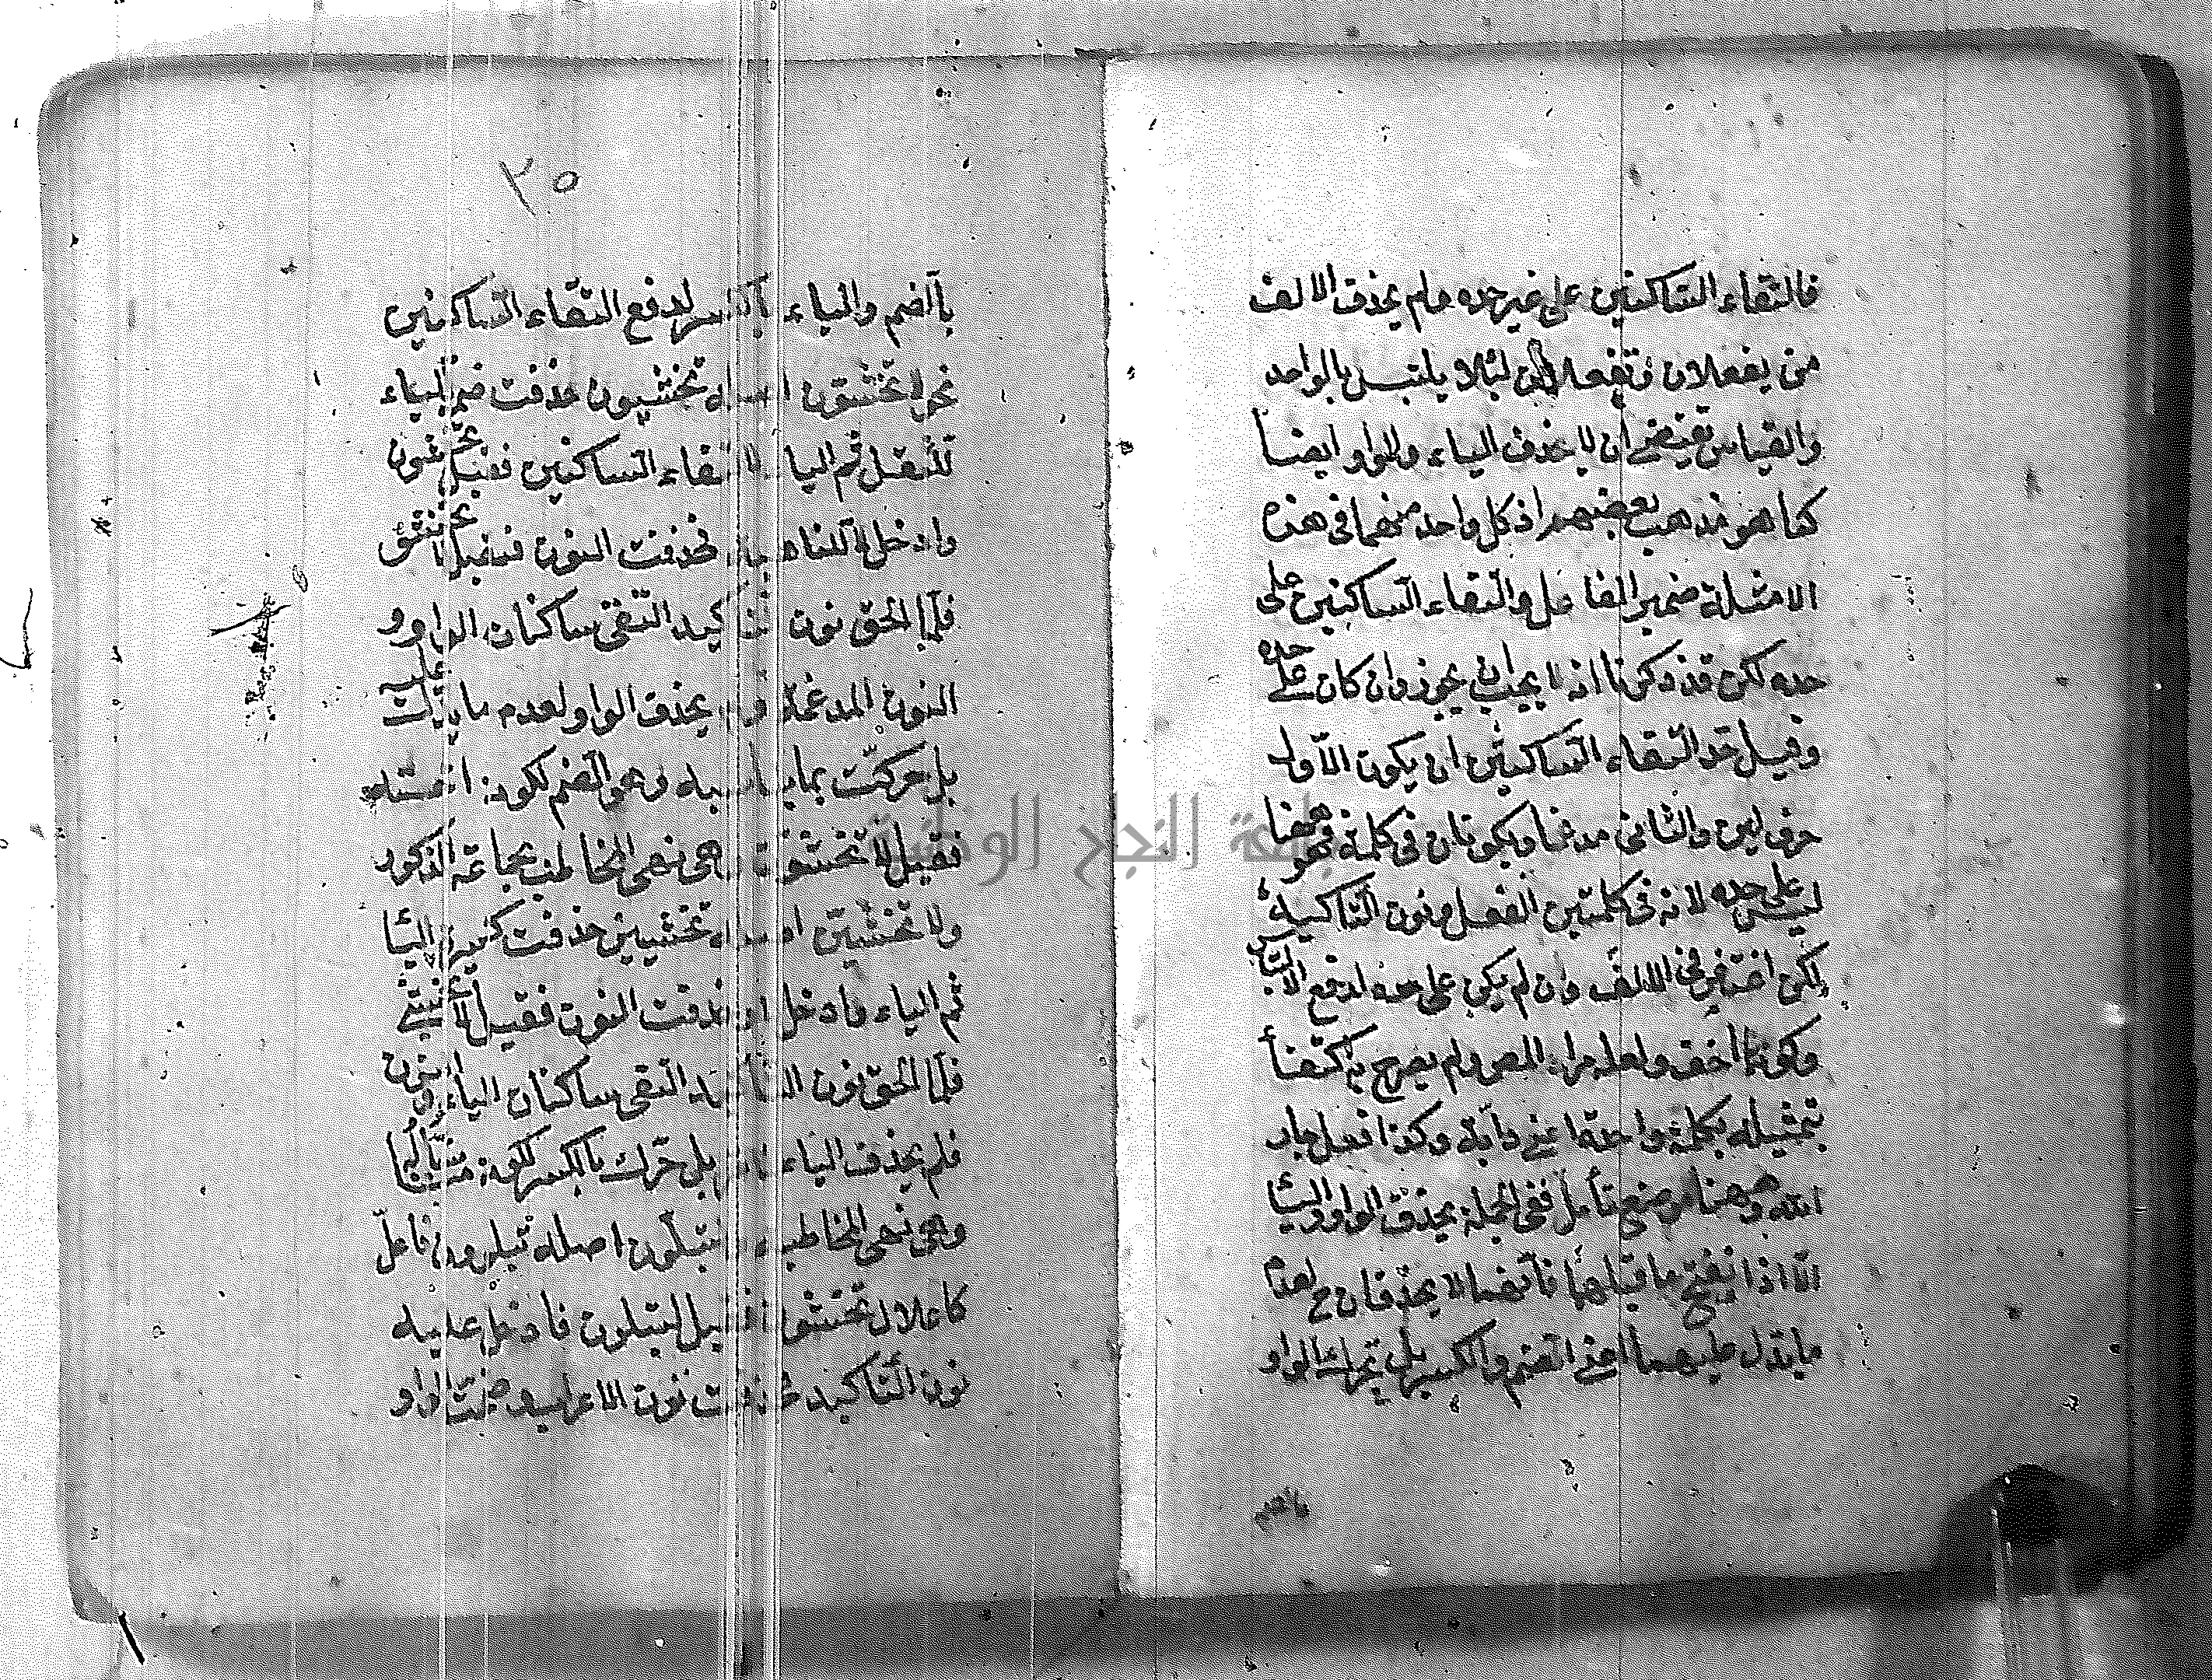 فالتقاء الساكنين على غير حده ولم يحذف الالف
من يفعلان وتفعلان لئلا يلتبس بالواحد
والقياس يقتضي ان لا يحذف الياء والواو ايضا
كما هو مذهب بعضهم اذ كل واحد منهما في هذه
الامثلة ضمير الفاعل والتقاء الساكنين على
حده لكن قد ذكرنا انه لا يجب ان يجوز وان كان على حده
وقيل حد التقاء الساكنين ان يكون الاول
حرف لين والثاني مدغما ويكونان في كلمة فهو ههنا
ليس على حده لانه في كلمتين الفعل ونون التاكيد
لكن اغتفر في الالف وان لم يكن على حده لدفع الالتباس
وكونها اخف ولعله مراد المص ولم يصرح به اكتفأ
بتمثيله بكلمة واحدة اعني دابة وكذا فعل جار
الله وههنا موضع تأمل ففي الجملة يحذف الواو والياء
الا اذا انفتح ما قبلهما فانهما لا يحذفان ح لعدم
ما يدل عليهما اعني الضم والكسر بل تحرك الواو
بالضم
٣٥
بالضم والياء بالكسر لدفع التقاء الساكنين
نحو لا تخشون اصله تخشيون حذفت ضم الياء
للثقل ثم الياء لالتقاء الساكنين فقيل تخشون
وادخل لا الناهية فحذفت النون فقيل لا تخشو
فلما الحق نون التاكيد التقى ساكنان الواو و
النون المدغمة فلم يحذف الواو لعدم ما يدل عليه
بل حركت بما يناسبه وهو الضم لكونه اخته
فقيل لا تخشون وهي نهي المخاطب بجماعة الذكور
ولا تخشين اصله تخشيين حذفت كسرة اليا
ثم الياء وادخل لا وحذفت النون فقيل لا تخشي
فلما الحق نون التاكيد التقى ساكنان الياء والنون
فلم يحذف الياء بل حرك بالكسر لكونه مناسبا لها
وهي نهي المخاطبة لتبلون اصله تبلوون فاعل
كاعلال تخشون فقيل لتبلون فادخل عليه
نون التاكيد فحذفت نون الاعراب وضمت الواو
جامعة النجاح الوطنية